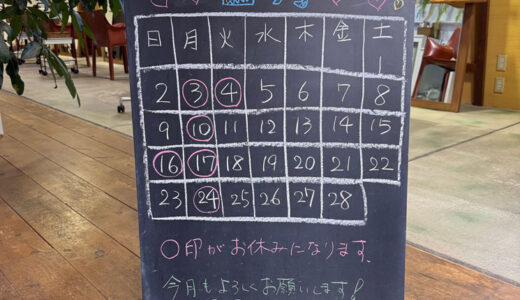 日 月 火 水 木 金 土
1
2 3 4 5 6 7 8
9 10 11 12 13 14 15
16 17 18 19 20 21 22
23 24 25 26 27 28
○印がお休みになります、
今月もよろしくお願いします!